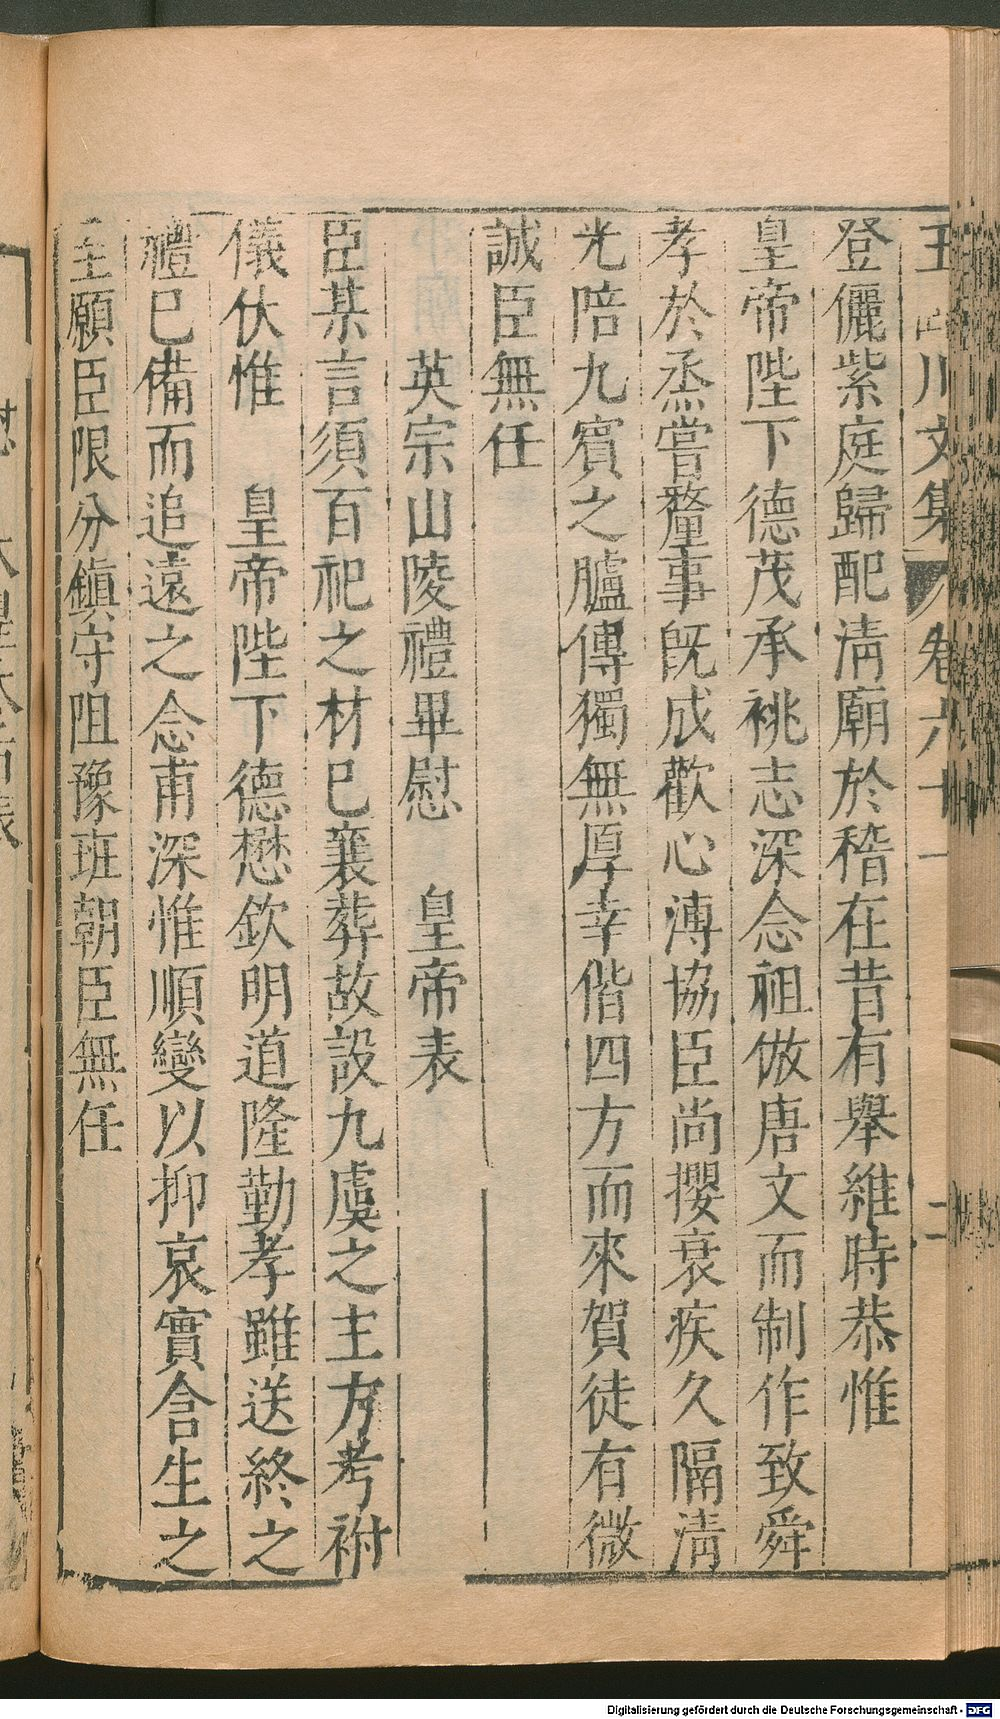 王臨川文集 卷六十一 二
登儷紫庭歸配清廟於稽在昔有舉維時恭惟
皇帝陛下德茂承祧志深念祖倣唐文而制作致舜
孝於烝嘗釐事既成歡心溥協臣尚攖衰疾久隔清
光陪九賓之臚傳獨無厚幸偕四方而來賀徒有微
誠臣無任
英宗山陵禮畢慰 皇帝表
臣某言須百祀之材巳襄葬故設九虞之主方考祔
儀伏惟 皇帝陛下德懋欽明道隆勤孝雖送終之
禮巳備而追遠之念甫深惟順變以抑哀實含生之
至願臣限分鎮守阻豫班朝臣無任
Digitalisierung gefördert durch die Deutsche Forschungsgemeinschaft - DFG